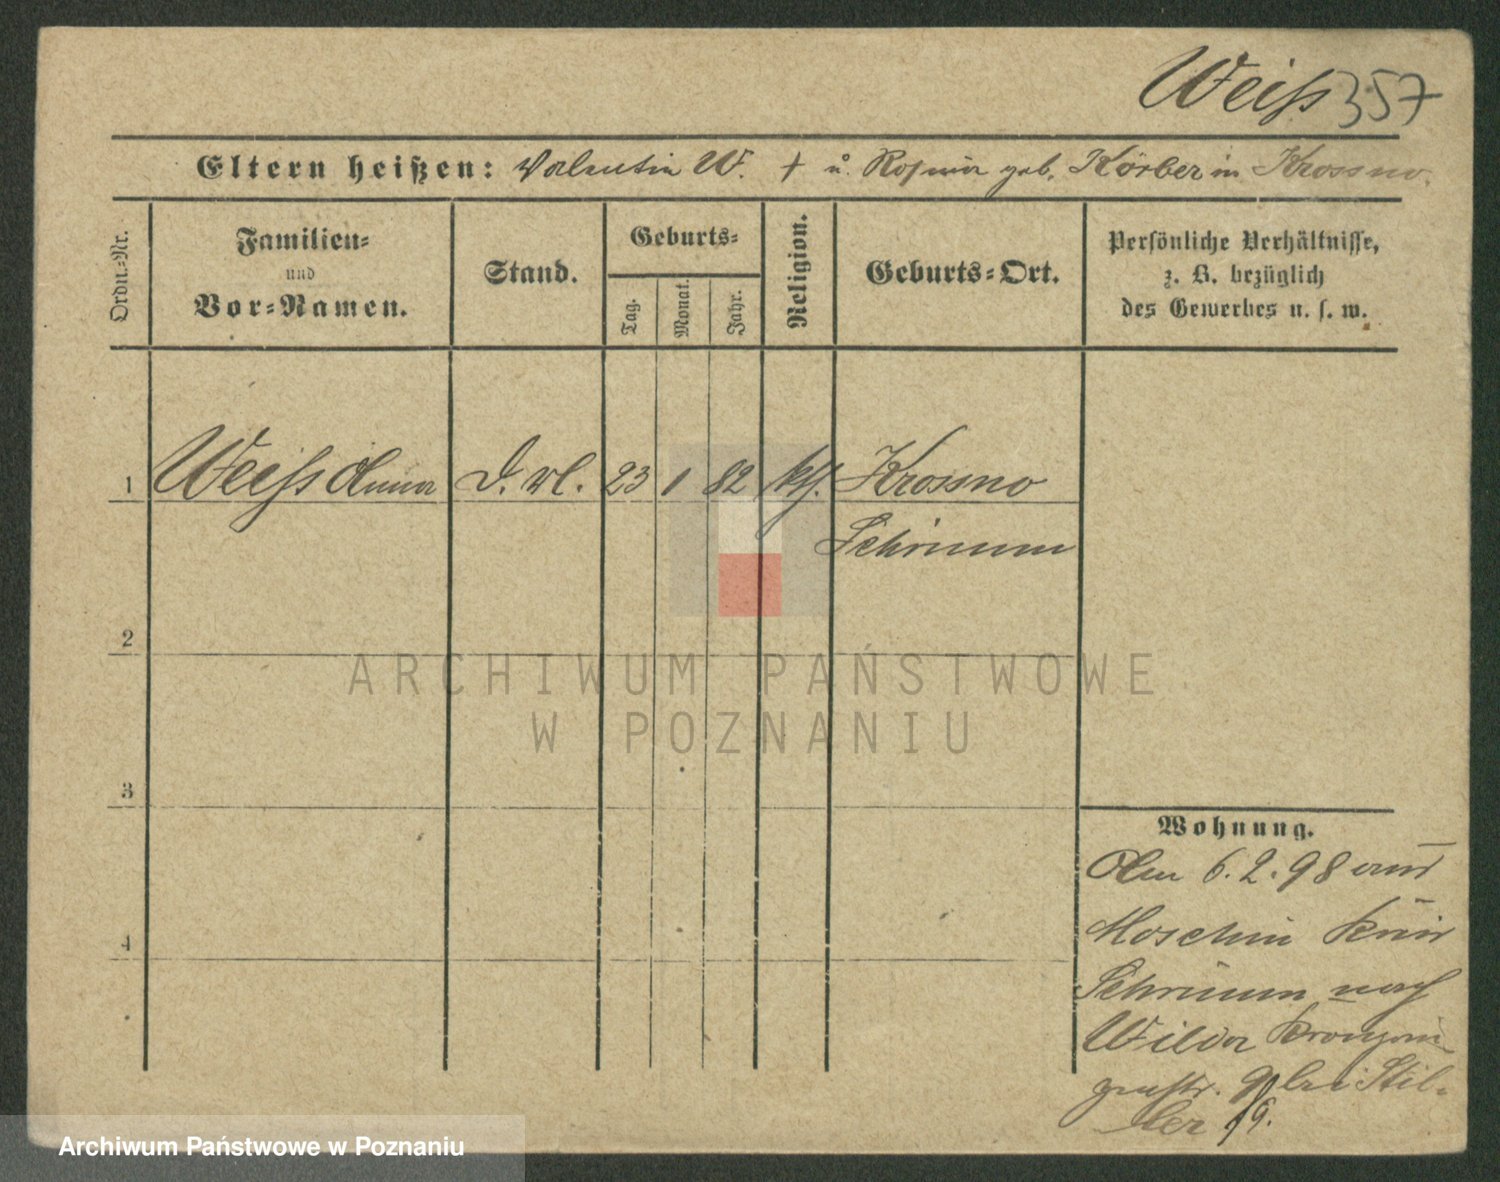 Weiß 357
Eltern heißen: Valentin W. + u. Rosina geb. Körber in Krossno.
Ordn.-Nr.
Familien-
und
Vor-Namen.
Stand.
Geburts-
Tag.
Monat.
Jahr.
Religion.
Geburts-Ort.
Persönliche Verhältnisse,
z. B. bezüglich
des Gewerbes u. s. w.
1 Weiß Anna D. vl. 23 1 82 kth. Krossno
Schrimm
2
ARCHIWUM PAŃSTWOWE
W POZNANIU
3
Wohnung.
Am 6.2.98 aus
Moschin Kreis
4
Schrimm nach
Wilda Kronprin
zenstr. bei Stil-
ler
Archiwum Państwowe w Poznaniu